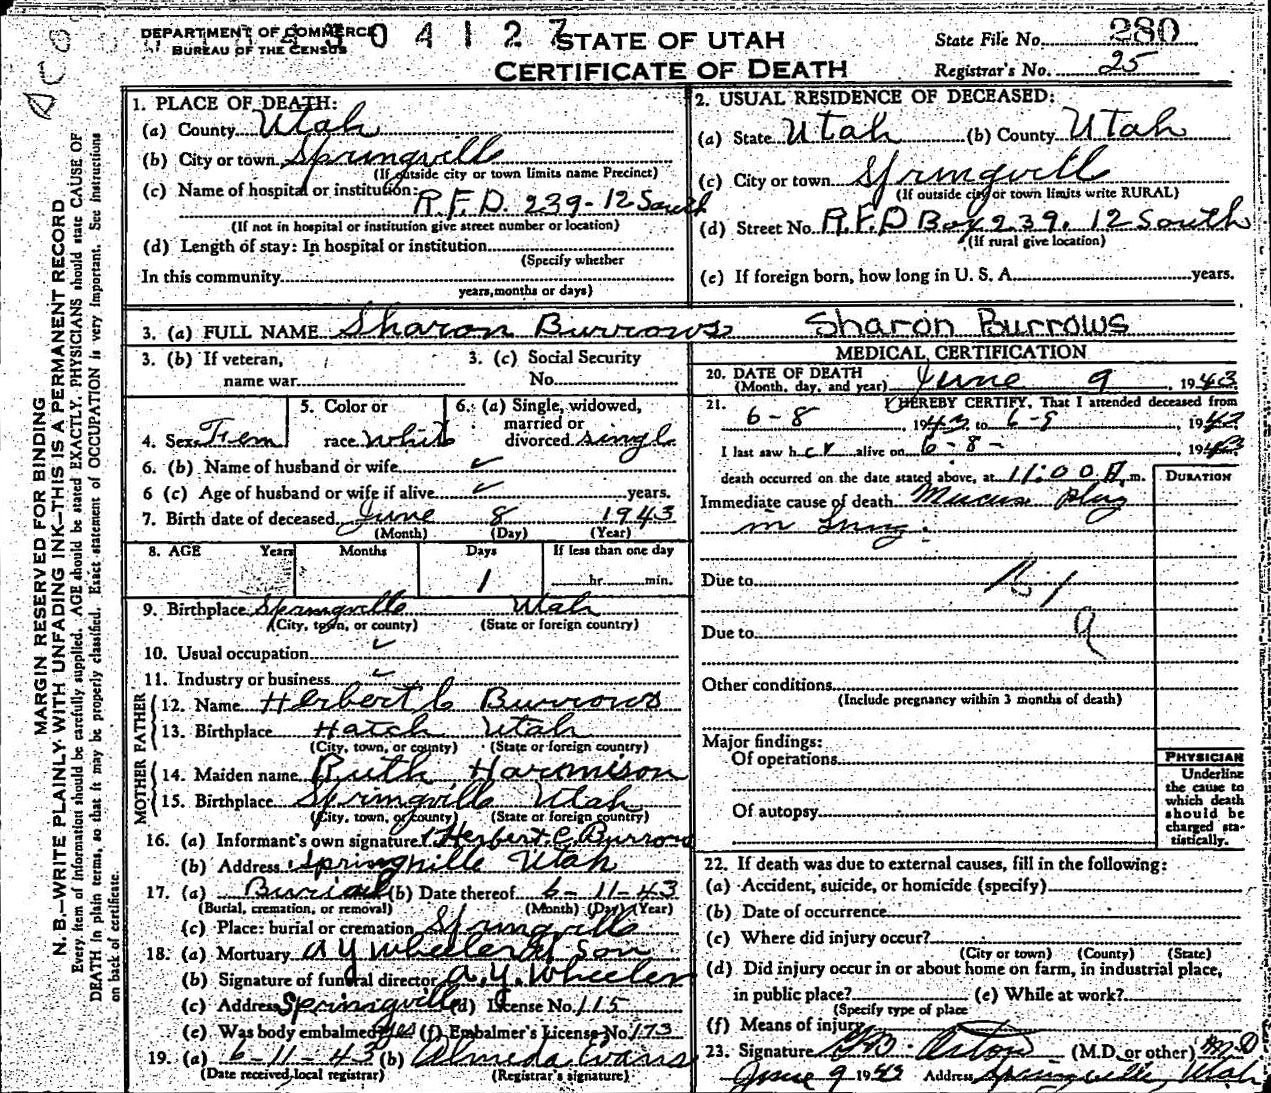 DEPARTMENT OF COMMERCE
BUREAU OF THE CENSUS
04127
STATE OF UTAH
CERTIFICATE OF DEATH
State File No. 280
Registrar's No. 25
MARGIN RESERVED FOR BINDING
N. B.—WRITE PLAINLY WITH UNFADING INK—THIS IS A PERMANENT RECORD
Every item of information should be carefully supplied. AGE should be stated EXACTLY. PHYSICIANS should state CAUSE OF
DEATH in plain terms, so that it may be properly classified. Exact statement of OCCUPATION is very important. See instructions
on back of certificate.
1. PLACE OF DEATH:
(a) County Utah
(b) City or town Springville
(If outside city or town limits name Precinct)
(c) Name of hospital or institution:
R.F.D. 239-12 South
(If not in hospital or institution give street number or location)
(d) Length of stay: In hospital or institution
(Specify whether
In this community
years, months or days)
2. USUAL RESIDENCE OF DECEASED:
(a) State Utah (b) County Utah
(c) City or town Springville
(If outside city or town limits write RURAL)
(d) Street No. R.F.D Box 239. 12 South
(If rural give location)
(e) If foreign born, how long in U. S. A. years.
3. (a) FULL NAME Sharon Burrows Sharon Burrows
3. (b) If veteran,
name war
3. (c) Social Security
No.
4. Sex Fem
5. Color or
race White
6. (a) Single, widowed,
married or
divorced single
6. (b) Name of husband or wife ✓
6 (c) Age of husband or wife if alive ✓ years.
7. Birth date of deceased June 8 1943
(Month) (Day) (Year)
8. AGE Years Months Days If less than one day
1 hr. min.
9. Birthplace Springville Utah
(City, town, or county) (State or foreign country)
10. Usual occupation ✓
11. Industry or business ✓
FATHER
12. Name Herbert C Burrows
13. Birthplace Hatch Utah
(City, town, or county) (State or foreign country)
MOTHER
14. Maiden name Ruth Harmison
15. Birthplace Springville Utah
(City, town, or county) (State or foreign country)
16. (a) Informant's own signature Herbert C. Burrows
(b) Address Springville Utah
17. (a) Burial (b) Date thereof 6-11-43
(Burial, cremation, or removal) (Month) (Day) (Year)
(c) Place: burial or cremation Springville
18. (a) Mortuary A Y Wheeler & Son
(b) Signature of funeral director A. Y. Wheeler
(c) Address Springville (d) License No. 115
(e) Was body embalmed yes (f) Embalmer's License No. 173
19. (a) 6-11-43 (b) Almeda Evans
(Date received local registrar) (Registrar's signature)
MEDICAL CERTIFICATION
20. DATE OF DEATH
(Month, day, and year) June 9, 1943
21. I HEREBY CERTIFY, That I attended deceased from
6-8, 1943, to 6-9, 1943
I last saw her alive on 6-8-, 1943
death occurred on the date stated above, at 11:00 A. m.
DURATION
Immediate cause of death Mucus plug
in Lung.
Due to
Due to
Other conditions
(Include pregnancy within 3 months of death)
Major findings:
Of operations
Of autopsy
PHYSICIAN
Underline
the cause to
which death
should be
charged sta-
tistically.
22. If death was due to external causes, fill in the following:
(a) Accident, suicide, or homicide (specify)
(b) Date of occurrence
(c) Where did injury occur?
(City or town) (County) (State)
(d) Did injury occur in or about home on farm, in industrial place,
in public place? (e) While at work?
(Specify type of place
(f) Means of injury
23. Signature Orton (M.D. or other) M D
June 9 1943 Address Springville, Utah